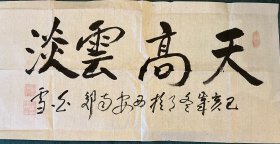 天高雲淡
己亥年冬月於西安南郊
雪石